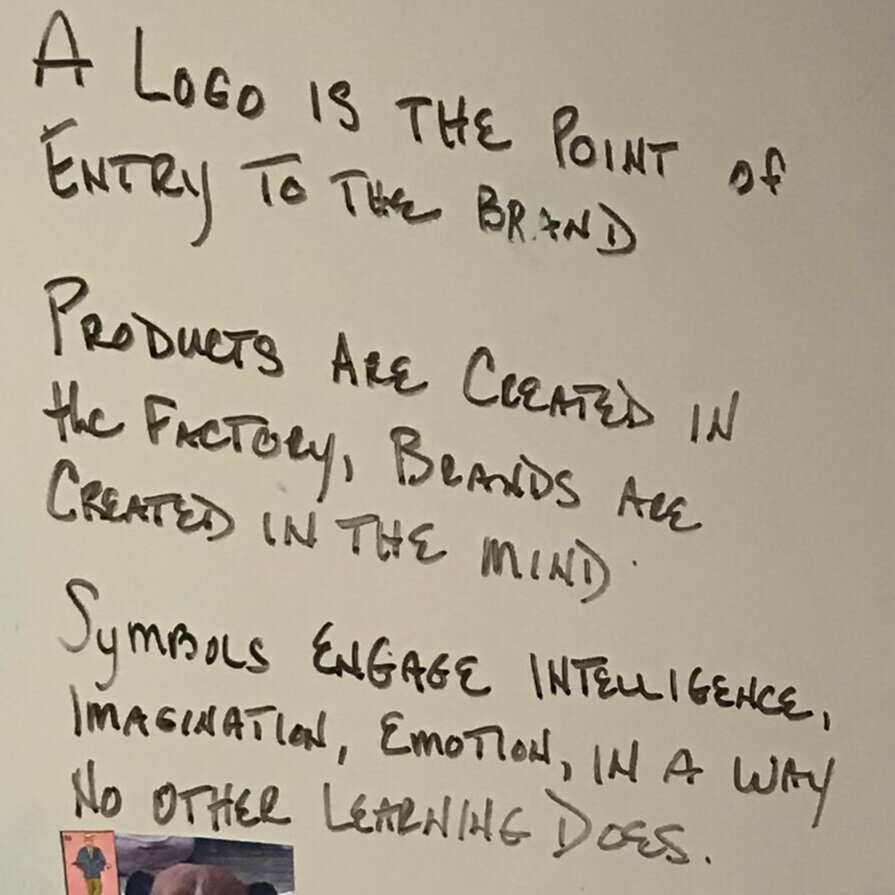 A LOGO IS THE POINT of
ENTRY TO THE BRAND
PRODUCTS ARE CREATED IN
the FACTORY, BRANDS ARE
CREATED IN THE MIND.
SYMBOLS ENGAGE INTELLIGENCE,
IMAGINATION, EMOTION, IN A WAY
NO OTHER LEARNING DOES.